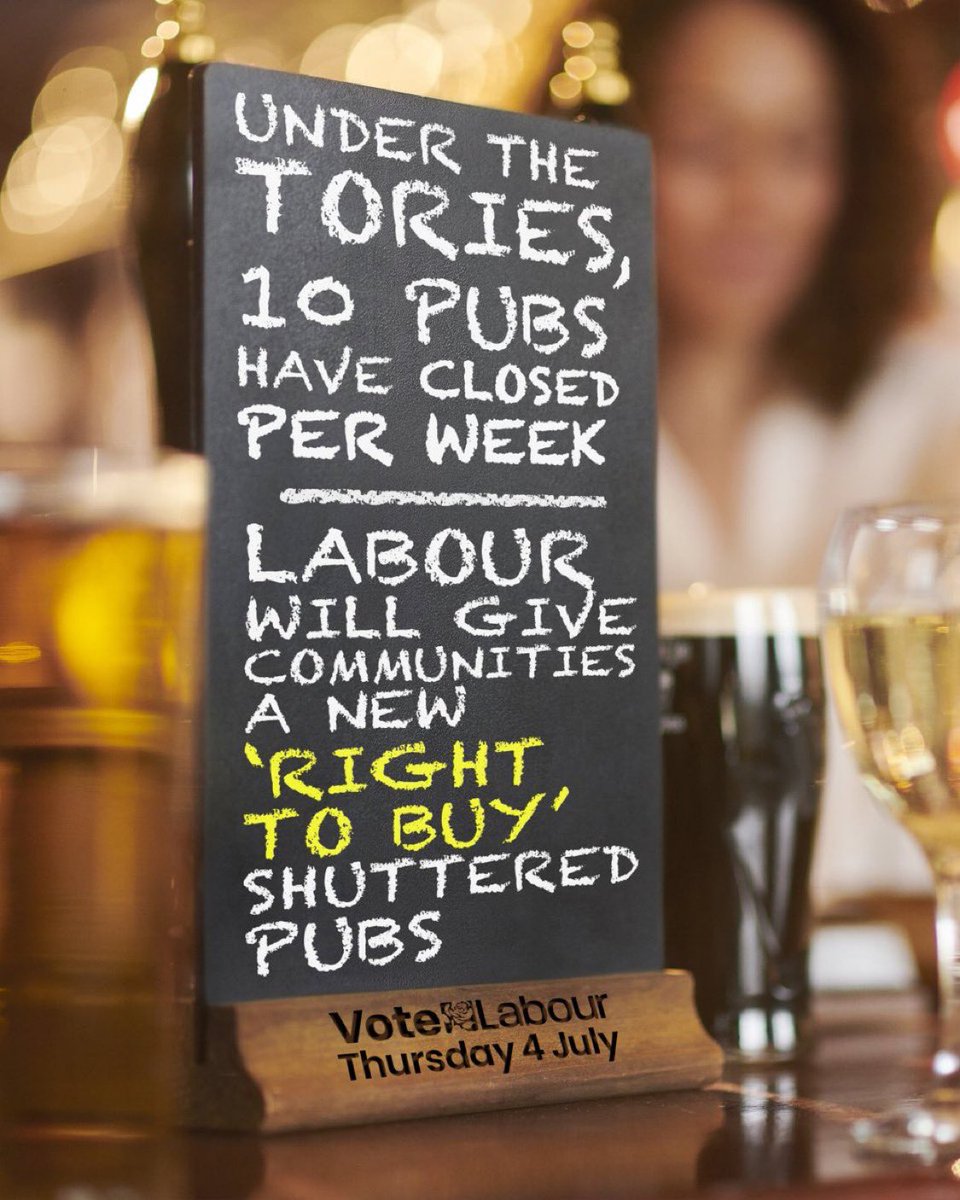 UNDER THE
TORIES,
10 PUBS
HAVE CLOSED
PER WEEK
LABOUR
WILL GIVE
COMMUNITIES
A NEW
'RIGHT
TO BUY'
SHUTTERED
PUBS
Vote Labour
Thursday 4 July